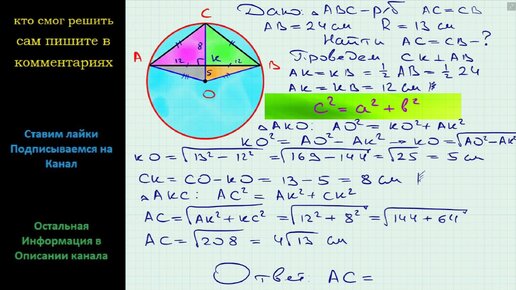 кто смог решить
сам пишите в
комментариях
Ставим лайки
Подписываемся на
Канал
Остальная
Информация в
Описании канала
C
A
B
K
O
8
12
12
5
Дано: △ABC - р/б AC = CB
AB = 24 см R = 13 см
Найти AC = CB - ?
Проведем CK ⊥ AB
AK = KB = 1/2 AB = 1/2 24
AK = KB = 12 см
c² = a² + b²
△AKO: AO² = KO² + AK²
KO² = AO² - AK² → KO = √AO² - AK²
KO = √13² - 12² = √169 - 144 = √25 = 5 см
CK = CO - KO = 13 - 5 = 8 см
△AKC: AC² = AK² + CK²
AC = √AK² + KC² = √12² + 8² = √144 + 64
AC = √208 = 4√13 см
Ответ: AC =